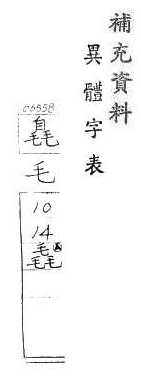 補充資料
異體字表
C6558
毛
10
14
毳